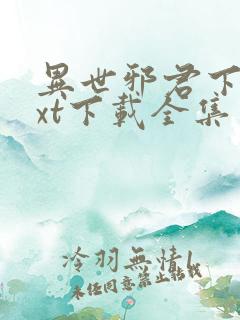 異世邪君下
xt下載全集
冷羽無情l
未任同意禁止轉載